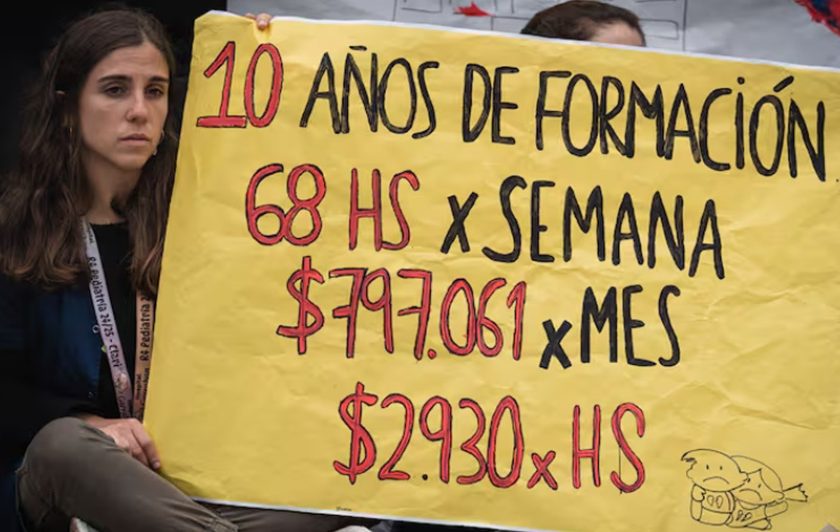 10 AÑOS DE FORMACIÓN.
68 HS x SEMANA
$797.061 x MES
$2.930 x HS
R4 Pediatría 24/25 - Clari
R4 Pediatría